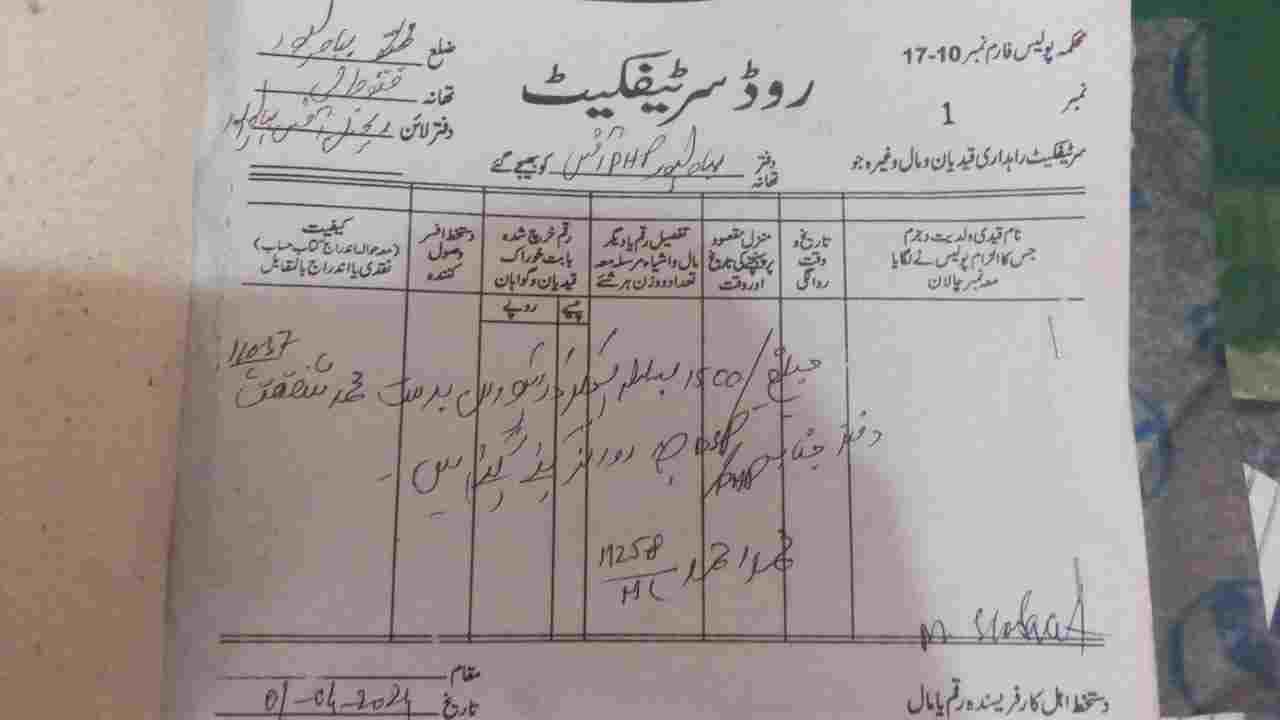 محکمہ پولیس فارم نمبر 10-17
ضلع بہاولپور
روڈ سرٹیفکیٹ
تھانہ
نمبر 1
دفتر لائن
سرٹیفکیٹ راہداری قیدیان و مال وغیرہ جو
دفتر تھانہ PHP آفس بہاولپور کو بھیجے گئے
نام قیدی ولدیت و جرم جس کا الزام پولیس نے لگایا معہ نمبر چالان
تاریخ و وقت روانگی
منزل مقصود پر پہنچنے کی تاریخ اور وقت
تفصیل رقم یا دیگر مال و اشیاء مرسلہ معہ تعداد و وزن ہر شئے
رقم خرچ شدہ بابت خوراک قیدیان و گواہان
دستخط افسر وصول کنندہ
کیفیت (معہ حوالہ اندراج کتاب حساب) نقدی یا اندراج بالمقابل
پیسے
روپے
1
مبلغ /1500 بسلسلہ بدست محمد شفقت
دفتر جناب DSP PHP روانہ کئے گئے ہیں ۔
محمد احمد 11258/HC
M Shafqat
مقام
تاریخ 01-04-2024
دستخط اہل کار فریسندہ رقم یا مال